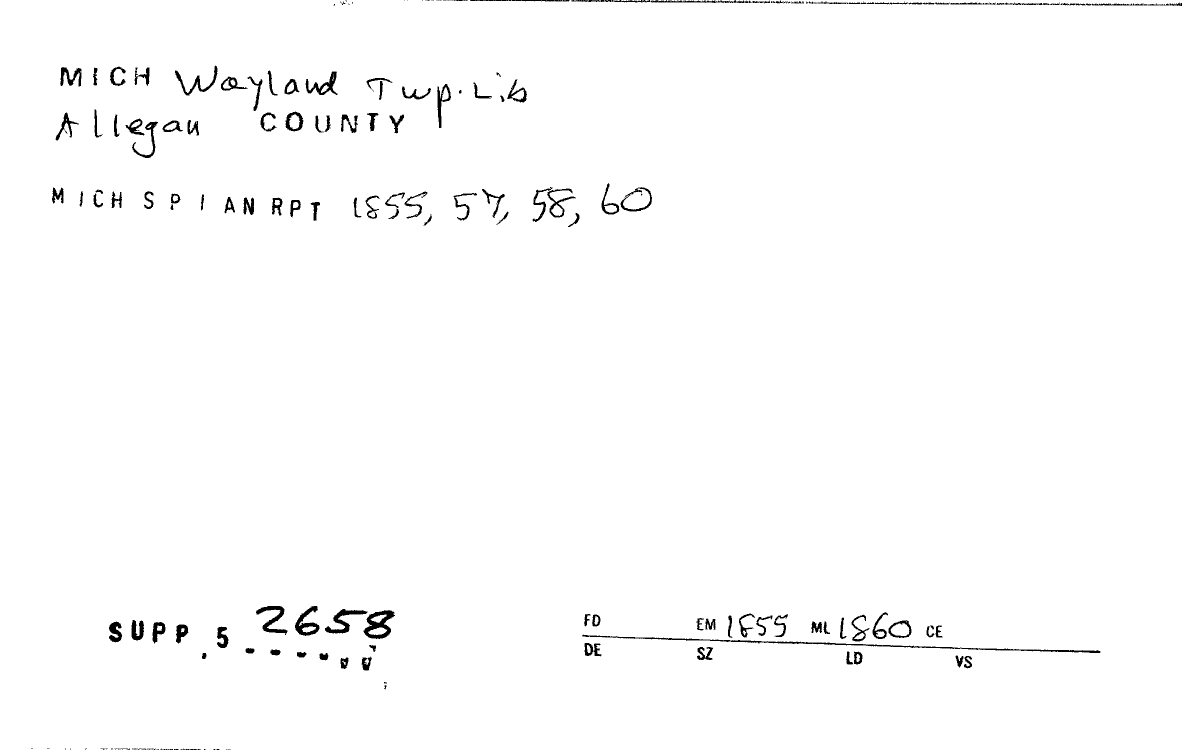 MICH Wayland Twp. Lib
Allegan COUNTY
MICH SPIAN RPT 1855, 57, 58, 60
SUPP. 5 2658
FD EM 1855 ML 1860 CE
DE SZ LD VS